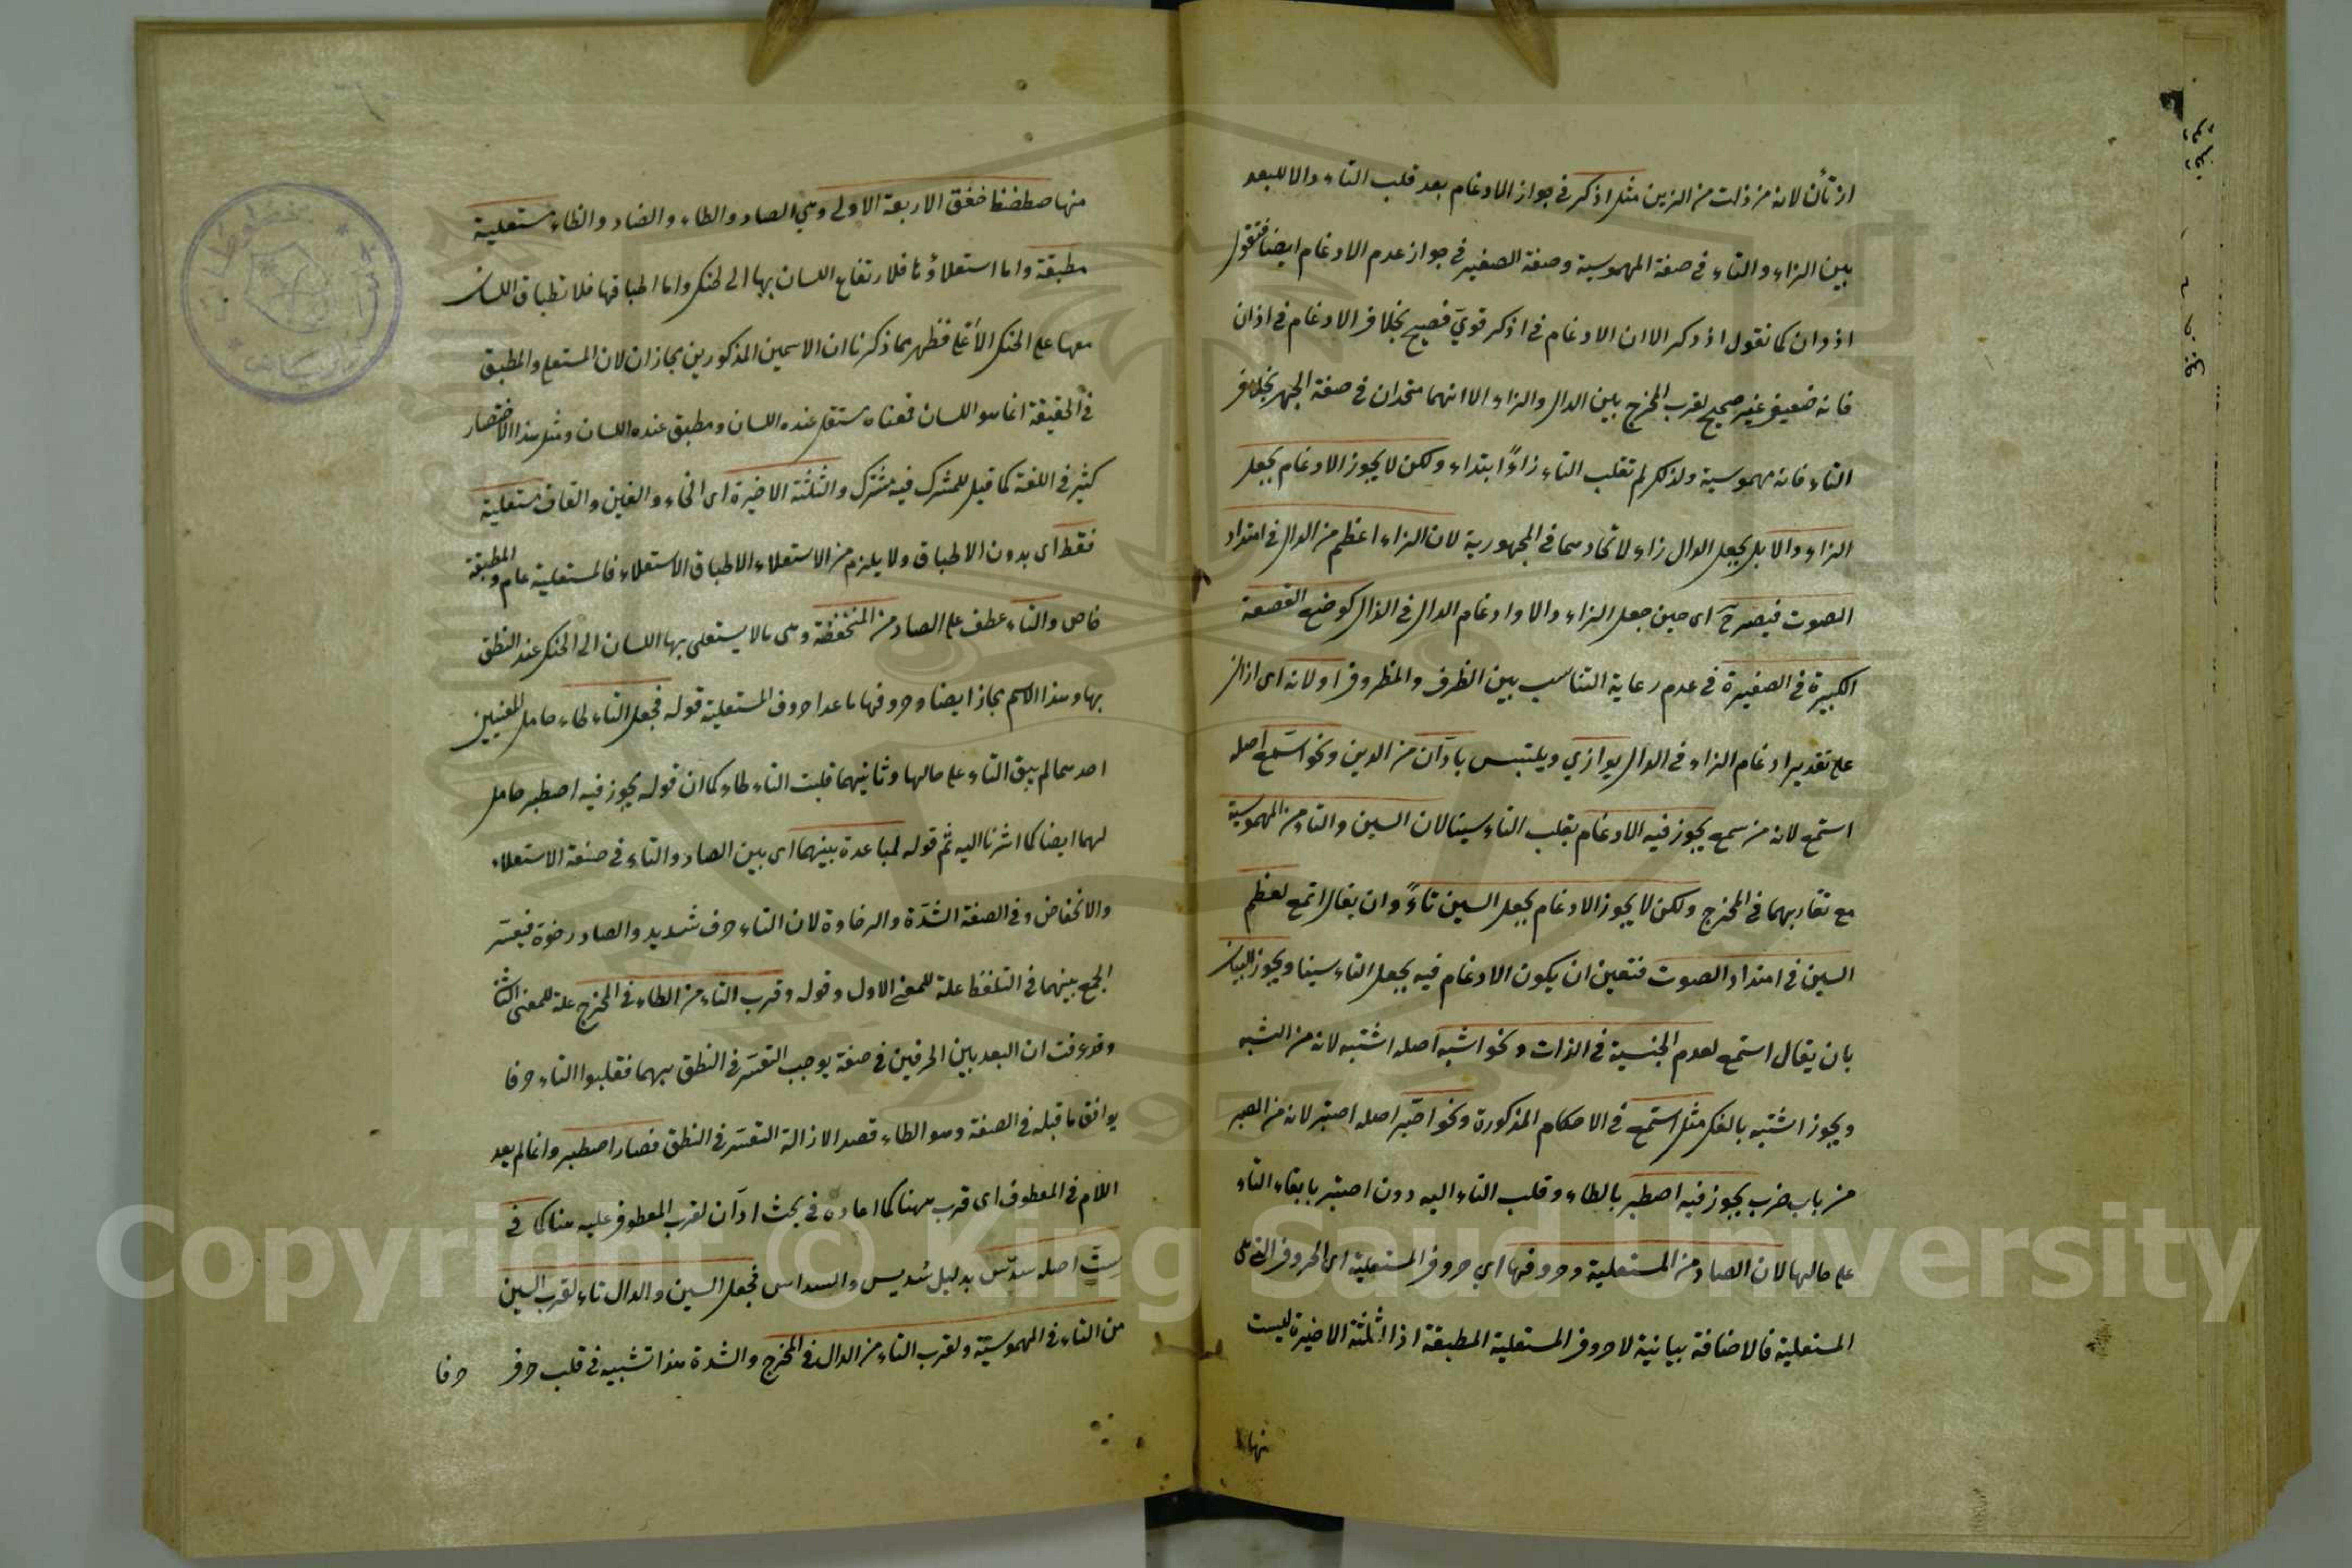 ازتأن لانه من ذلت من الزين مثل اذكر في جواز الادغام بعد قلب التاء دالا للبعد
بين الزاء والتاء في صفة المهموسية وصفة الصفير في جواز عدم الادغام ايضا فتقول
اذدان كما تقول اذدكر الا ان الادغام في اذكر قوي فصيح بخلاف الادغام في اذان
فانه ضعيف غير صحيح لقرب المخرج بين الدال والزاء الا انهما متحدان في صفة الجهر بخلاف
التاء فانه مهموسية ولذلك لم تقلب التاء زاءً ابتداء ولكن لا يجوز الادغام بجعل
الزاء دالا بل بجعل الدال زاء لاتحادهما في المجهورية لان الزاء اعظم من الدال في امتداد
الصوت فيصير ح اى حين جعل الزاء دالا وادغام الدال في الدال كوضع القصعة
الكبيرة في الصغيرة في عدم رعاية التناسب بين الظرف والمظروف او لانه اى ازان
على تقدير ادغام الزاء في الدال يوازي ويلتبس بادّان من الدين ونحو اسّمع اصله
استمع لانه من سمع يجوز فيه الادغام بقلب التاء سينا لان السين والتاء من المهموسية
مع تقاربهما في المخرج ولكن لا يجوز الادغام بجعل السين تاءً وان يقال اتمع لعظم
السين في امتداد الصوت فتعين ان يكون الادغام فيه بجعل التاء سينا ويجوز البيان
بان يقال استمع لعدم الجنسية في الذات ونحو اشبه اصله اشتبه لانه من الشبه
ويجوز اشتبه بالفك مثل استمع في الاحكام المذكورة ونحو اصّبر اصله اصتبر لانه من الصبر
من باب ضرب يجوز فيه اصطبر بالطاء وقلب التاء اليه دون اصتبر بابقاء التاء
على حالها لان الصاد من المستعلية وحروفها اي حروف المستعلية اى الحروف التي هى
المستعلية فالاضافة بيانية لا حروف المستعلية المطبقة اذ الثلثة الاخيرة ليست
منها
منها صطضظ خغق الاربعة الاولى وهي الصاد والطاء والضاد والظاء مستعلية
مطبقة واما استعلاؤها فلارتفاع اللسان بها الى الحنك واما اطباقها فلانطباق اللسان
معها على الحنك الأعلى فظهر مما ذكرنا ان الاسمين المذكورين مجازان لان المستعلى والمطبق
في الحقيقة انما هو اللسان فمعناه مستعل عنده اللسان ومطبق عنده اللسان ومثل هذا الاختصار
كثير في اللغة كما قيل للمشترك فيه مشترك والثلثة الاخيرة اى الخاء والغين والقاف مستعلية
فقط اى بدون الاطباق ولا يلزم من الاستعلاء الاطباق الاستعلاء فالمستعلية عام والمطبقة
خاص والتاء عطف على الصاد من المنخفظة وهى ما لا يستعلى بها اللسان الى الحنك عند النطق
بها وهذا الاسم مجاز ايضا وحروفها ما عدا حروف المستعلية قوله فجعل التاء طاء حامل للمعنيين
احدهما لم يبق التاء على حالها وثانيهما قلبت التاء طاء كما ان قوله يجوز فيه اصطبر حامل
لهما ايضا كما اشرنا اليه ثم قوله لمباعدة بينهما اى بين الصاد والتاء في صفة الاستعلاء
والانخفاض وفي الصفة الشدّة والرخاوة لان التاء حرف شديد والصاد رخوة فيعسّر
الجمع بينهما في التلفظ علة للمعنى الاول وقوله وقرب التاء من الطاء في المخرج علة للمعنى الثا
وقد عرفت ان البعد بين الحرفين في صفة يوجب التعسّر في النطق بهما فقلبوا التاء حرفا
يوافق ما قبله في الصفة وهو الطاء قصدا لازالة التعسّر في النطق فصار اصطبر وانما لم يعد
اللام في المعطوف اى قرب ههنا كما اعاده في بحث ادّان لقرب المعطوف عليه هنا كما في
ستّ اصله سدّس بدليل سُديس والسداس فجعل السين والدال تاء لقرب السين
من التاء في المهموسيّة ولقرب التاء من الدال في المخرج والشدة هذا تشبيه في قلب حرف
حرفا
Copyright © King Saud University